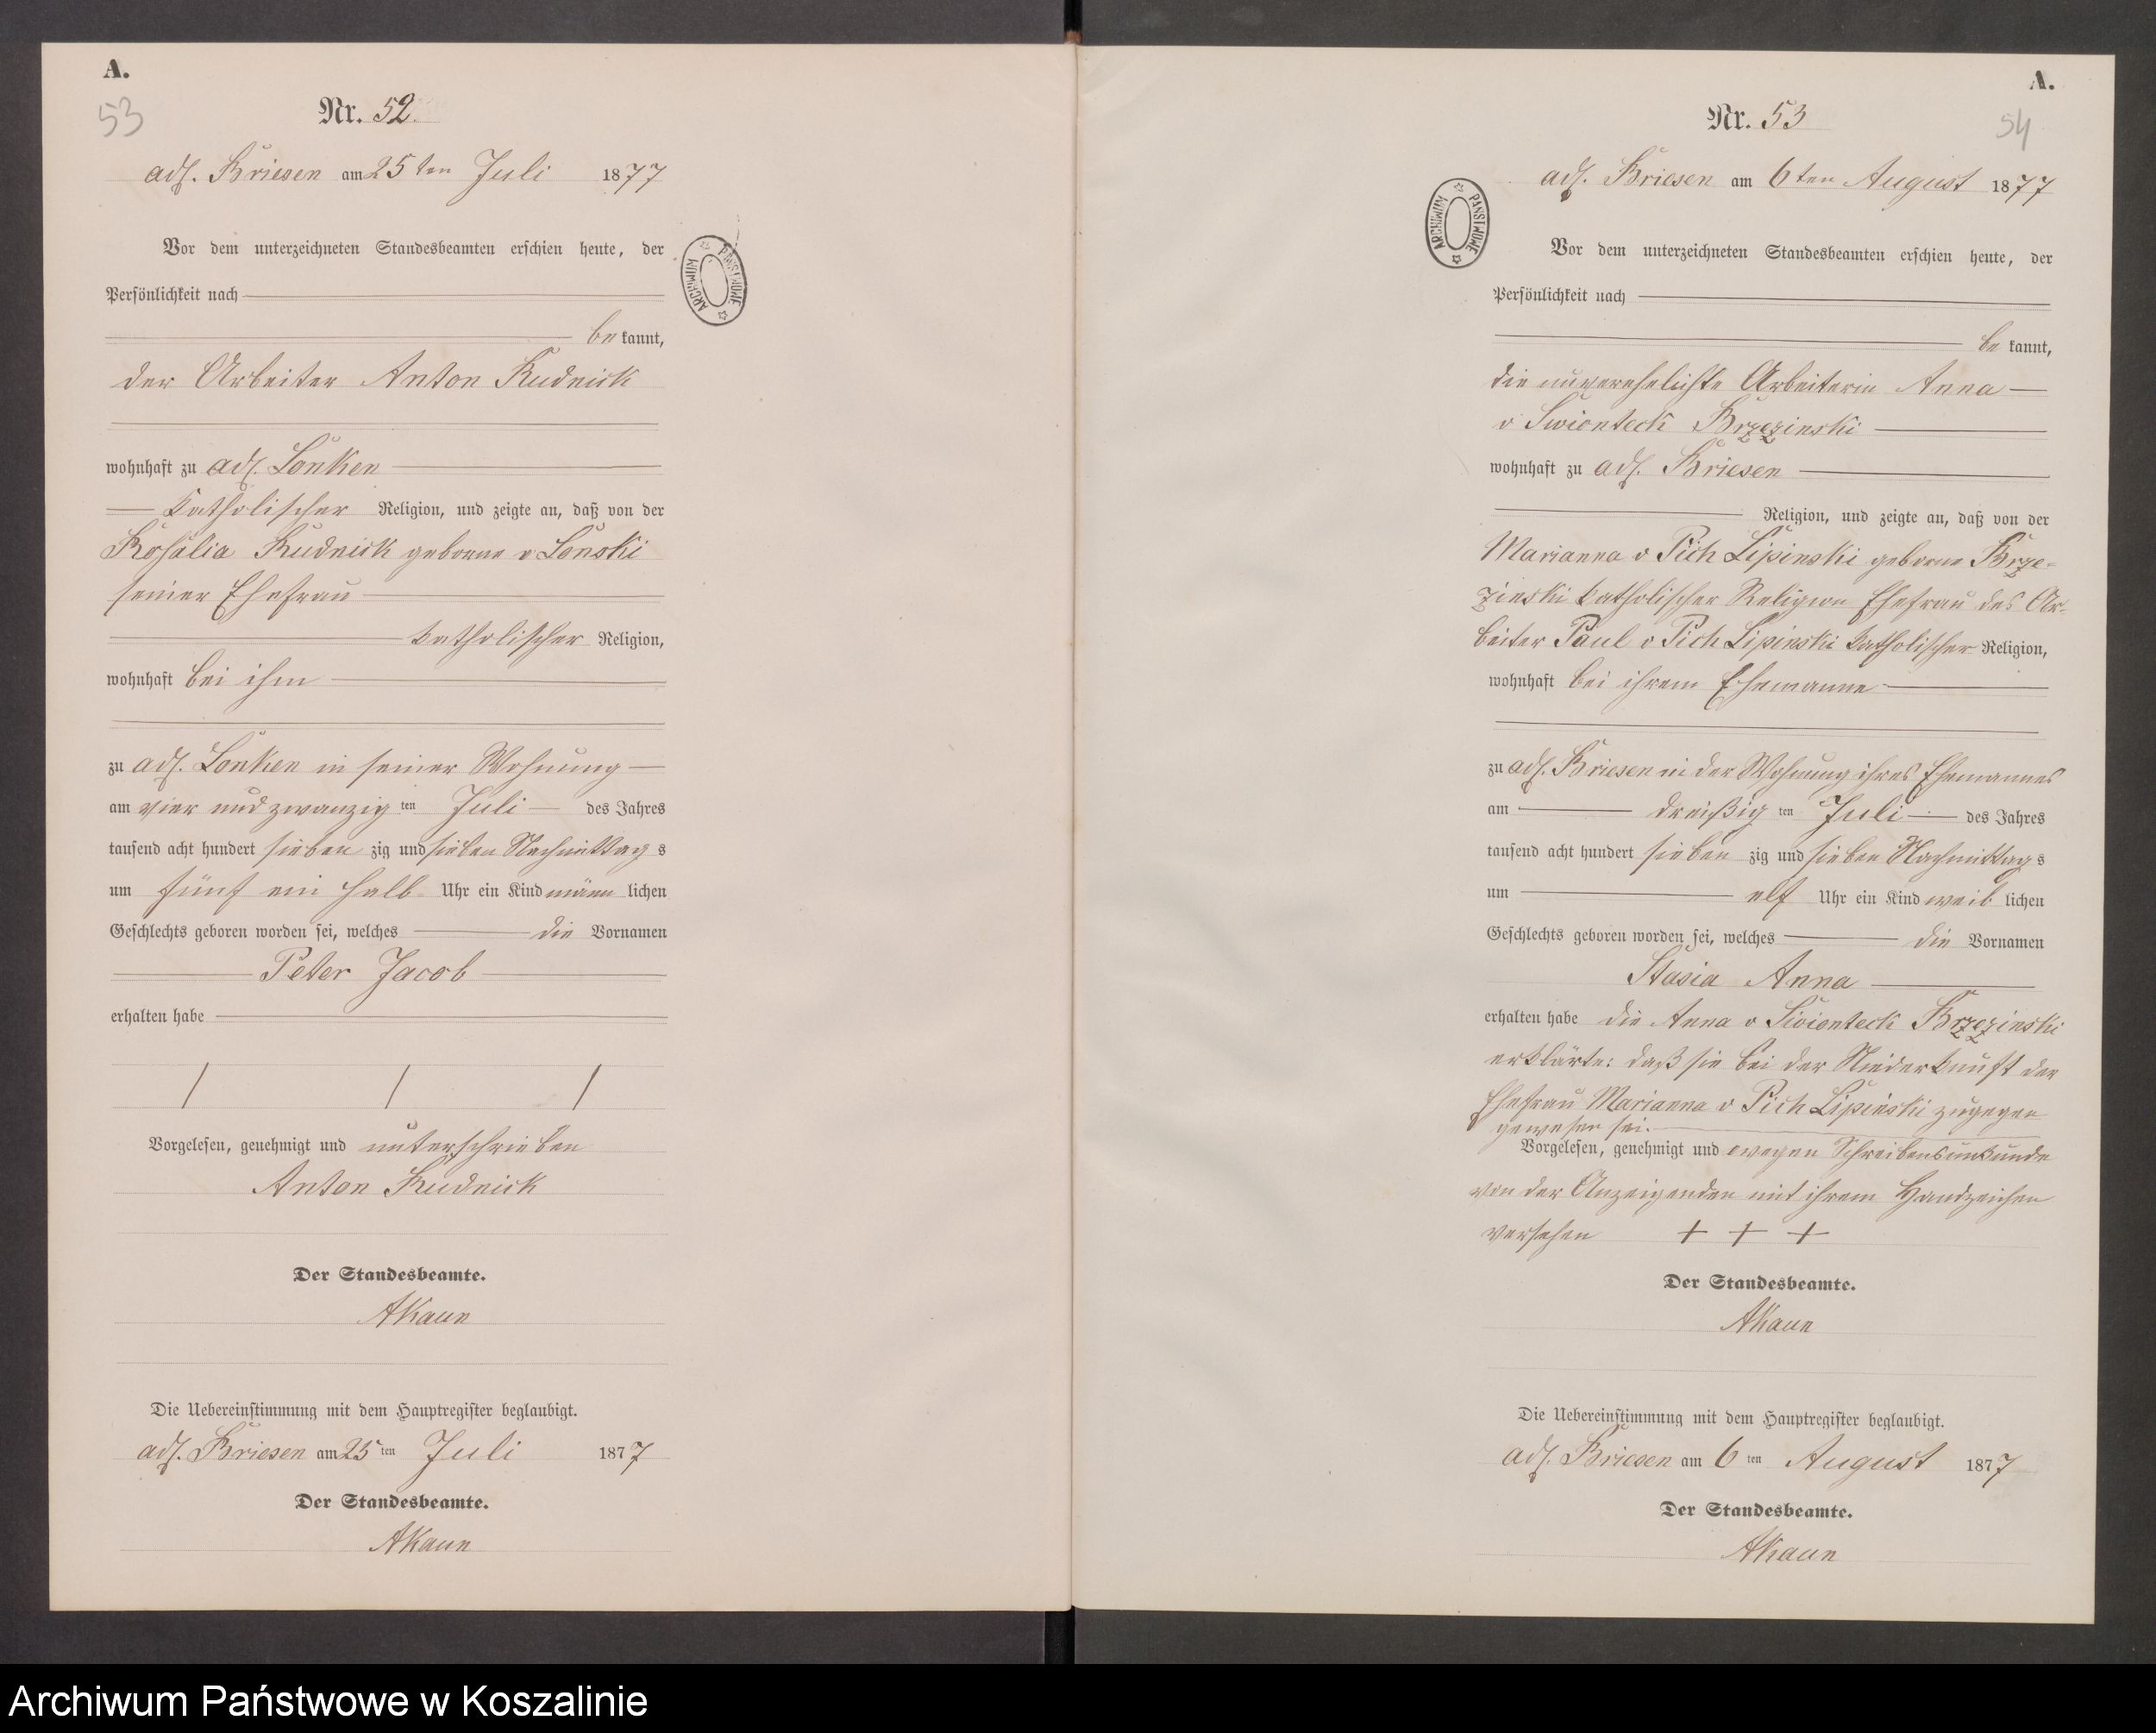 A.
53
Nr. 52.
adl. Briesen am 25ten Juli 1877
ARCHIWUM PAŃSTWOWE
Vor dem unterzeichneten Standesbeamten erschien heute, der
Persönlichkeit nach
be kannt,
der Arbeiter Anton Rudnick
wohnhaft zu adl. Lonken
katholischer Religion, und zeigte an, daß von der
Rosalia Rudnick geborne v Lonski
seiner Ehefrau
katholischer Religion,
wohnhaft bei ihm
zu adl. Lonken in seiner Wohnung
am vier und zwanzig ten Juli des Jahres
tausend acht hundert sieben zig und sieben Nachmittag s
um fünf ein halb Uhr ein Kind männ lichen
Geschlechts geboren worden sei, welches die Vornamen
Peter Jacob
erhalten habe
Vorgelesen, genehmigt und unterschrieben
Anton Rudnick
Der Standesbeamte.
AKaun
Die Uebereinstimmung mit dem Hauptregister beglaubigt.
adl. Briesen am 25 ten Juli 1877
Der Standesbeamte.
AKaun
A.
54
Nr. 53
adl. Briesen am 6ten August 1877
ARCHIWUM PAŃSTWOWE
Vor dem unterzeichneten Standesbeamten erschien heute, der
Persönlichkeit nach
be kannt,
die unverehelichte Arbeiterin Anna
v Swionteck Brzezinski
wohnhaft zu adl. Briesen
Religion, und zeigte an, daß von der
Marianna v Pich Lipinski geborne Brze-
zinski katholischer Religion Ehefrau des Ar-
beiter Paul v Pich Lipinski katholischer Religion,
wohnhaft bei ihrem Ehemanne
zu adl. Briesen in der Wohnung ihres Ehemannes
am dreißig ten Juli des Jahres
tausend acht hundert sieben zig und sieben Nachmittag s
um elf Uhr ein Kind weib lichen
Geschlechts geboren worden sei, welches die Vornamen
Stasia Anna
erhalten habe die Anna v Swionteck Brzezinski
erklärte: daß sie bei der Niederkunft der
Ehefrau Marianna v Pich Lipinski zugegen
gewesen sei.
Vorgelesen, genehmigt und wegen Schreibensunkunde
von der Anzeigenden mit ihrem Handzeichen
versehen + + +
Der Standesbeamte.
AKaun
Die Uebereinstimmung mit dem Hauptregister beglaubigt.
adl. Briesen am 6 ten August 1877
Der Standesbeamte.
AKaun
Archiwum Państwowe w Koszalinie